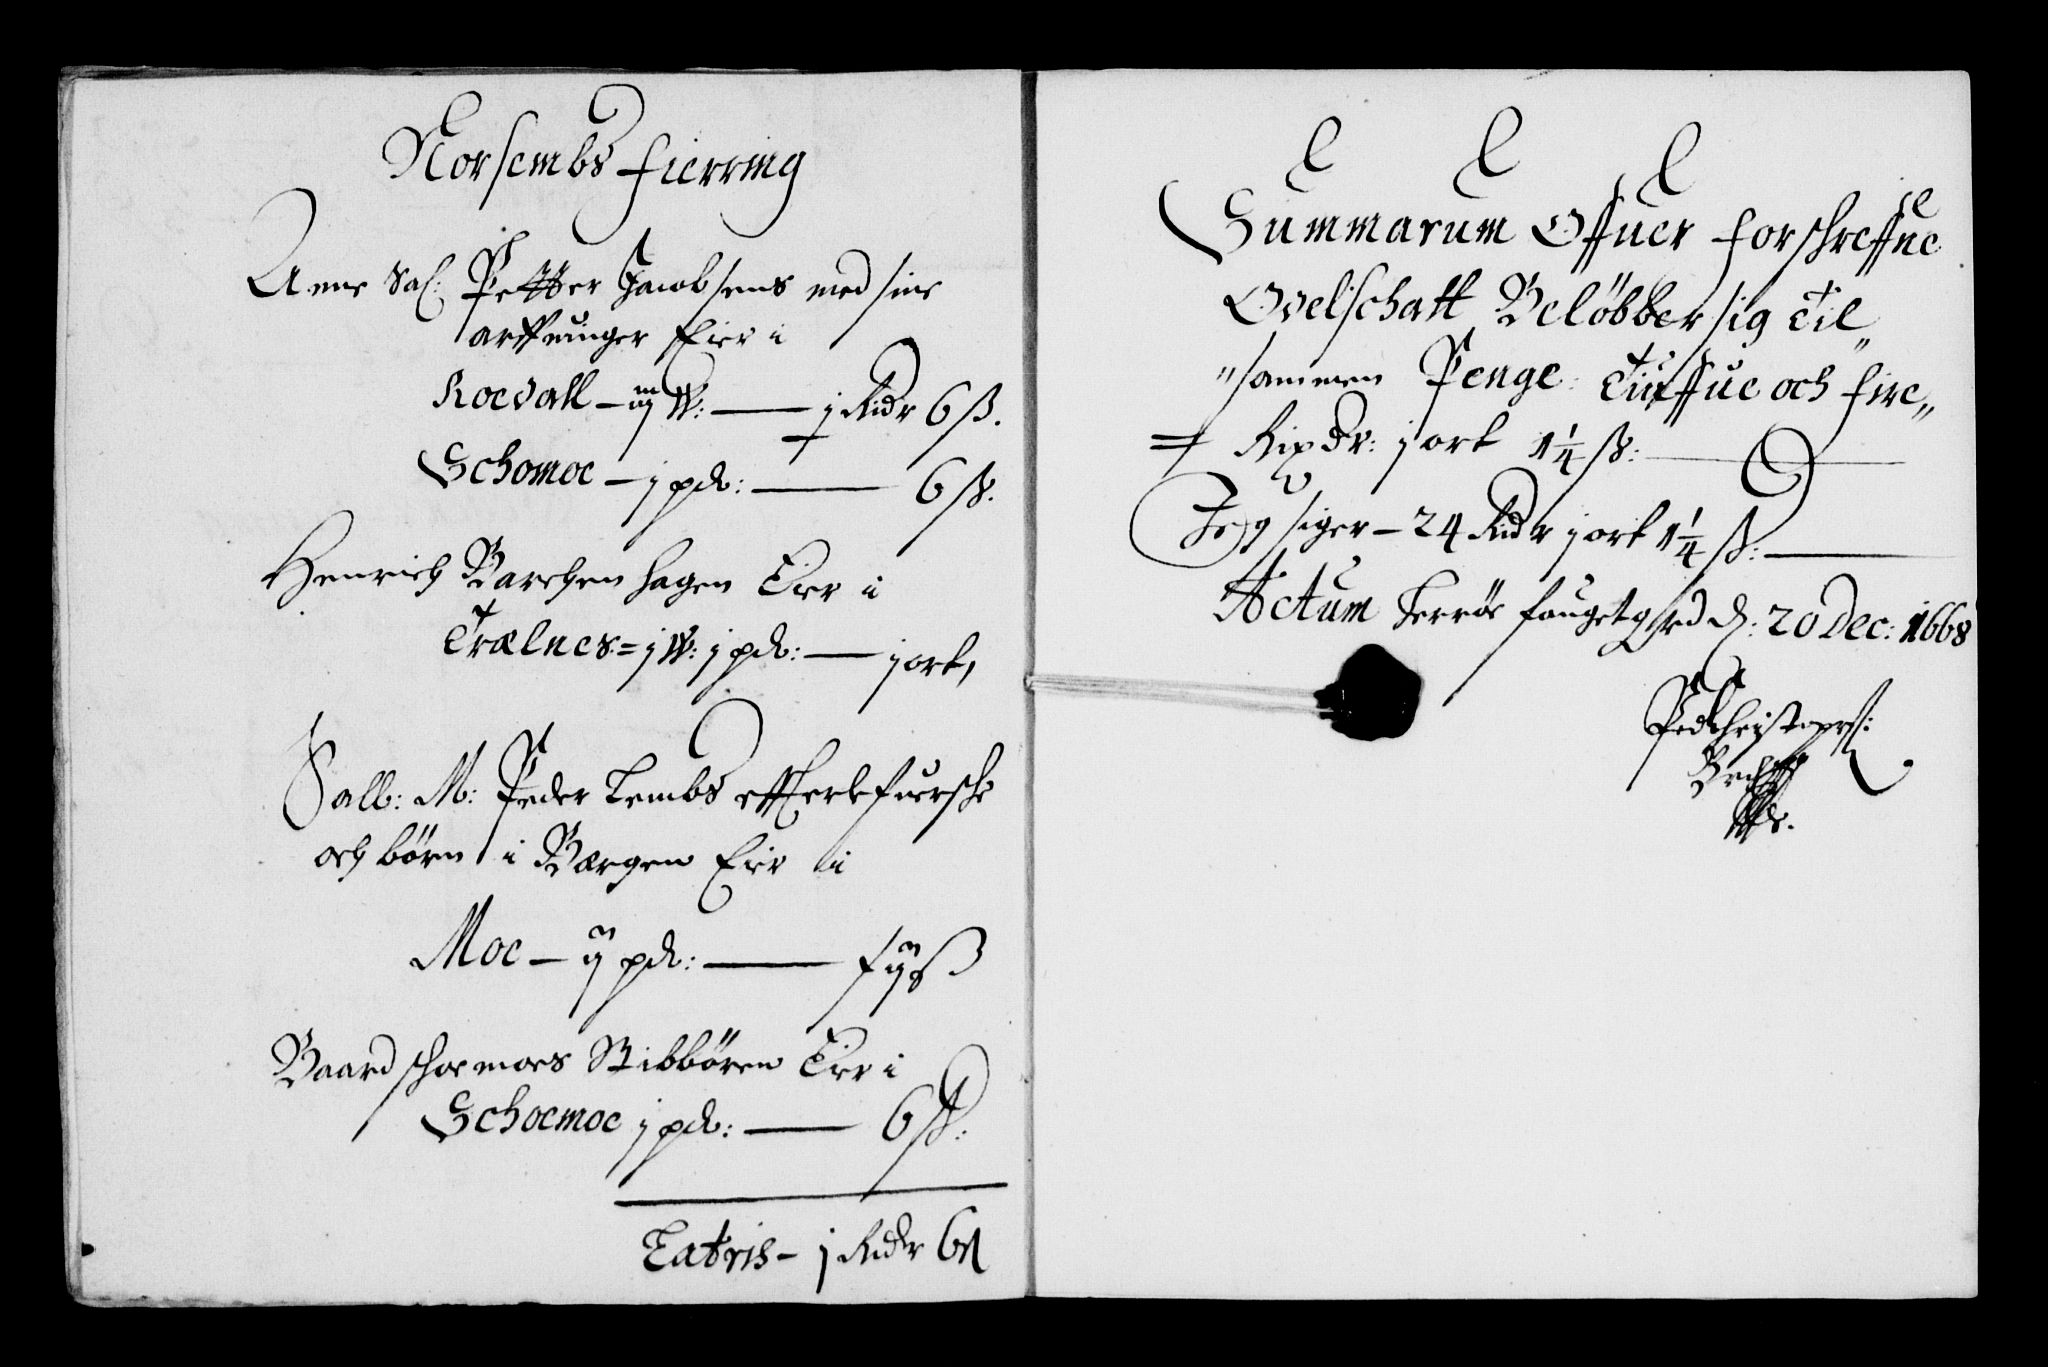 Norsembs fierring
Anne Sal: Petter Jacobsens med sine
arffuinger Eier i
Roevall – iij W: — j Ridr 6 ß.
Schomoe – j pd: — 6 ß.
Henrich Barchenhagen Eier i
Trælnes = j W: j pd: — j ort,
Sall: M: Peder Lembs effterlefuersche
och börn i Bærgen Eier i
Moe – ij pd: — ß
Baard schoemoes Stibbören Eier i
Schoemoe j pd: — 6 ß:
Latris – j Ridr 6 ß
Summarum Offuer forschreffne
Odelschatt Belöbber sig Til„
„sammen Penge: Tiuffue och fire„
= Rixdr: j ort 1¼ ß:
Jeg siger – 24 Ridr j ort 1¼ ß:
Actum Terröe fougetgård d: 20 Dec: 1668
Ped Christophrs: